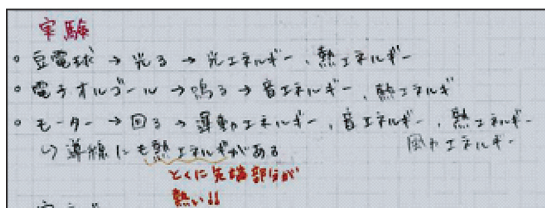 実験
• 豆電球 → 光る → 光エネルギー、熱エネルギー
• 電子オルゴール → 鳴る → 音エネルギー、熱エネルギー
• モーター → 回る → 運動エネルギー、音エネルギー、熱エネルギー
風力エネルギー
↳ 導線にも熱エネルギーがある
とくに先端部分が
熱い!!